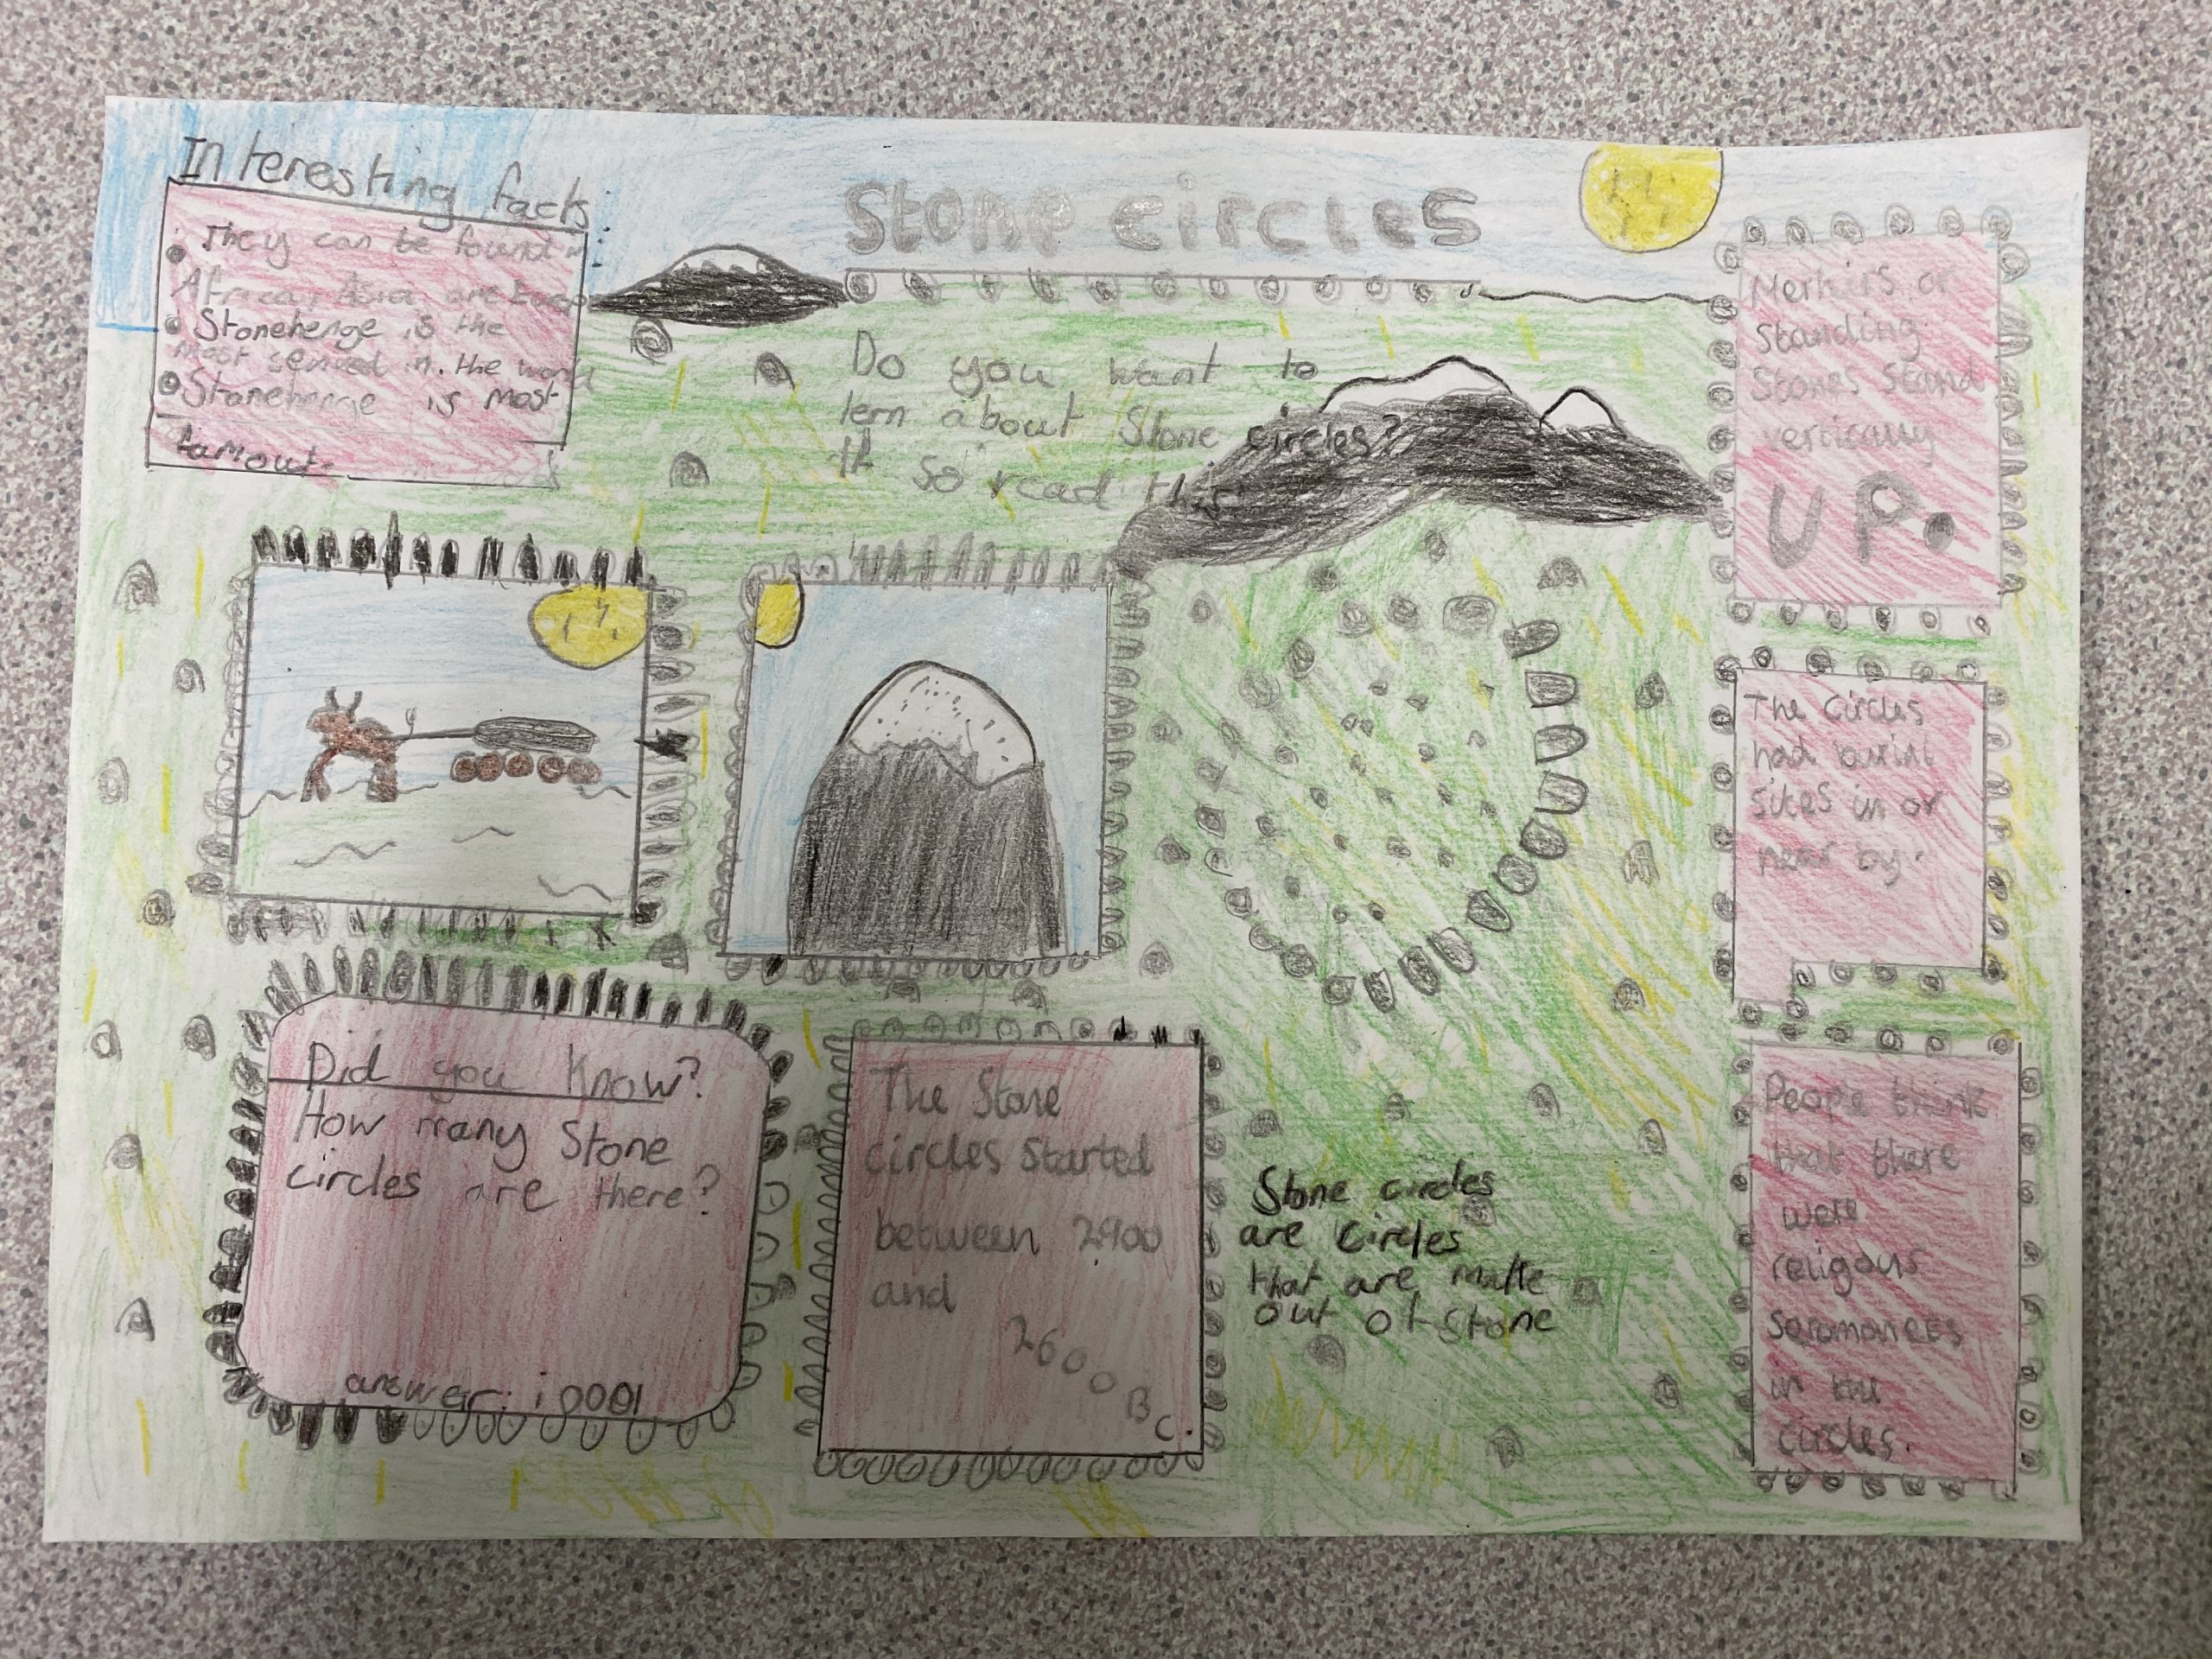 Stone circles
Interesting facts
They can be found in
Africa, Asia, are Europ
Stonehenge is the
most served in. the world
Stonehenge is most
famous
Do you want to
lern about Stone circles?
so read this
Merhirs or
standing
Stones stand
verticauy
UP.
The circles
had burial
sites in or
near by.
People think
that there
were
religous
seromonees
in the
circles.
Did you Know?
How many Stone
circles are there?
answer:
The Stone
circles started
between 2900
and
2600 BC.
Stone circles
are circles
that are
out of Stone